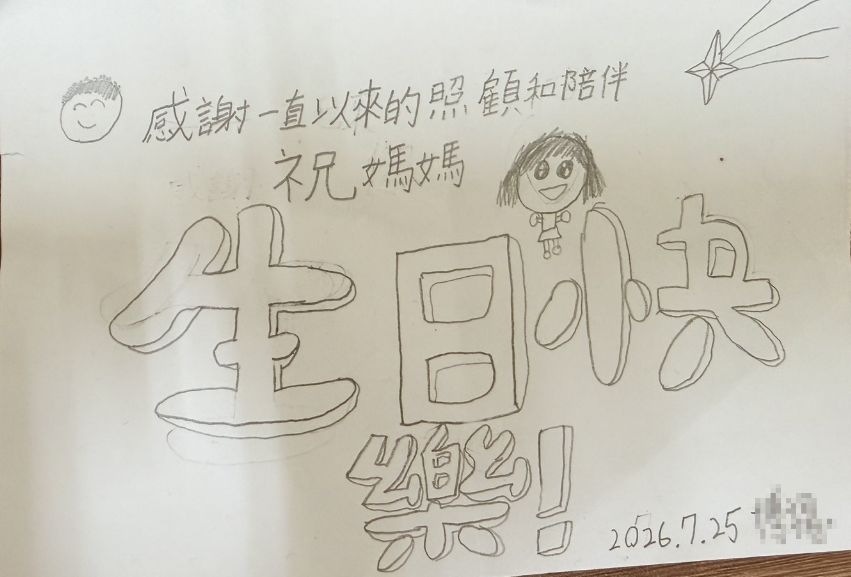 感謝一直以來的照顧和陪伴
祝媽媽
生日快
樂!
2026.7.25